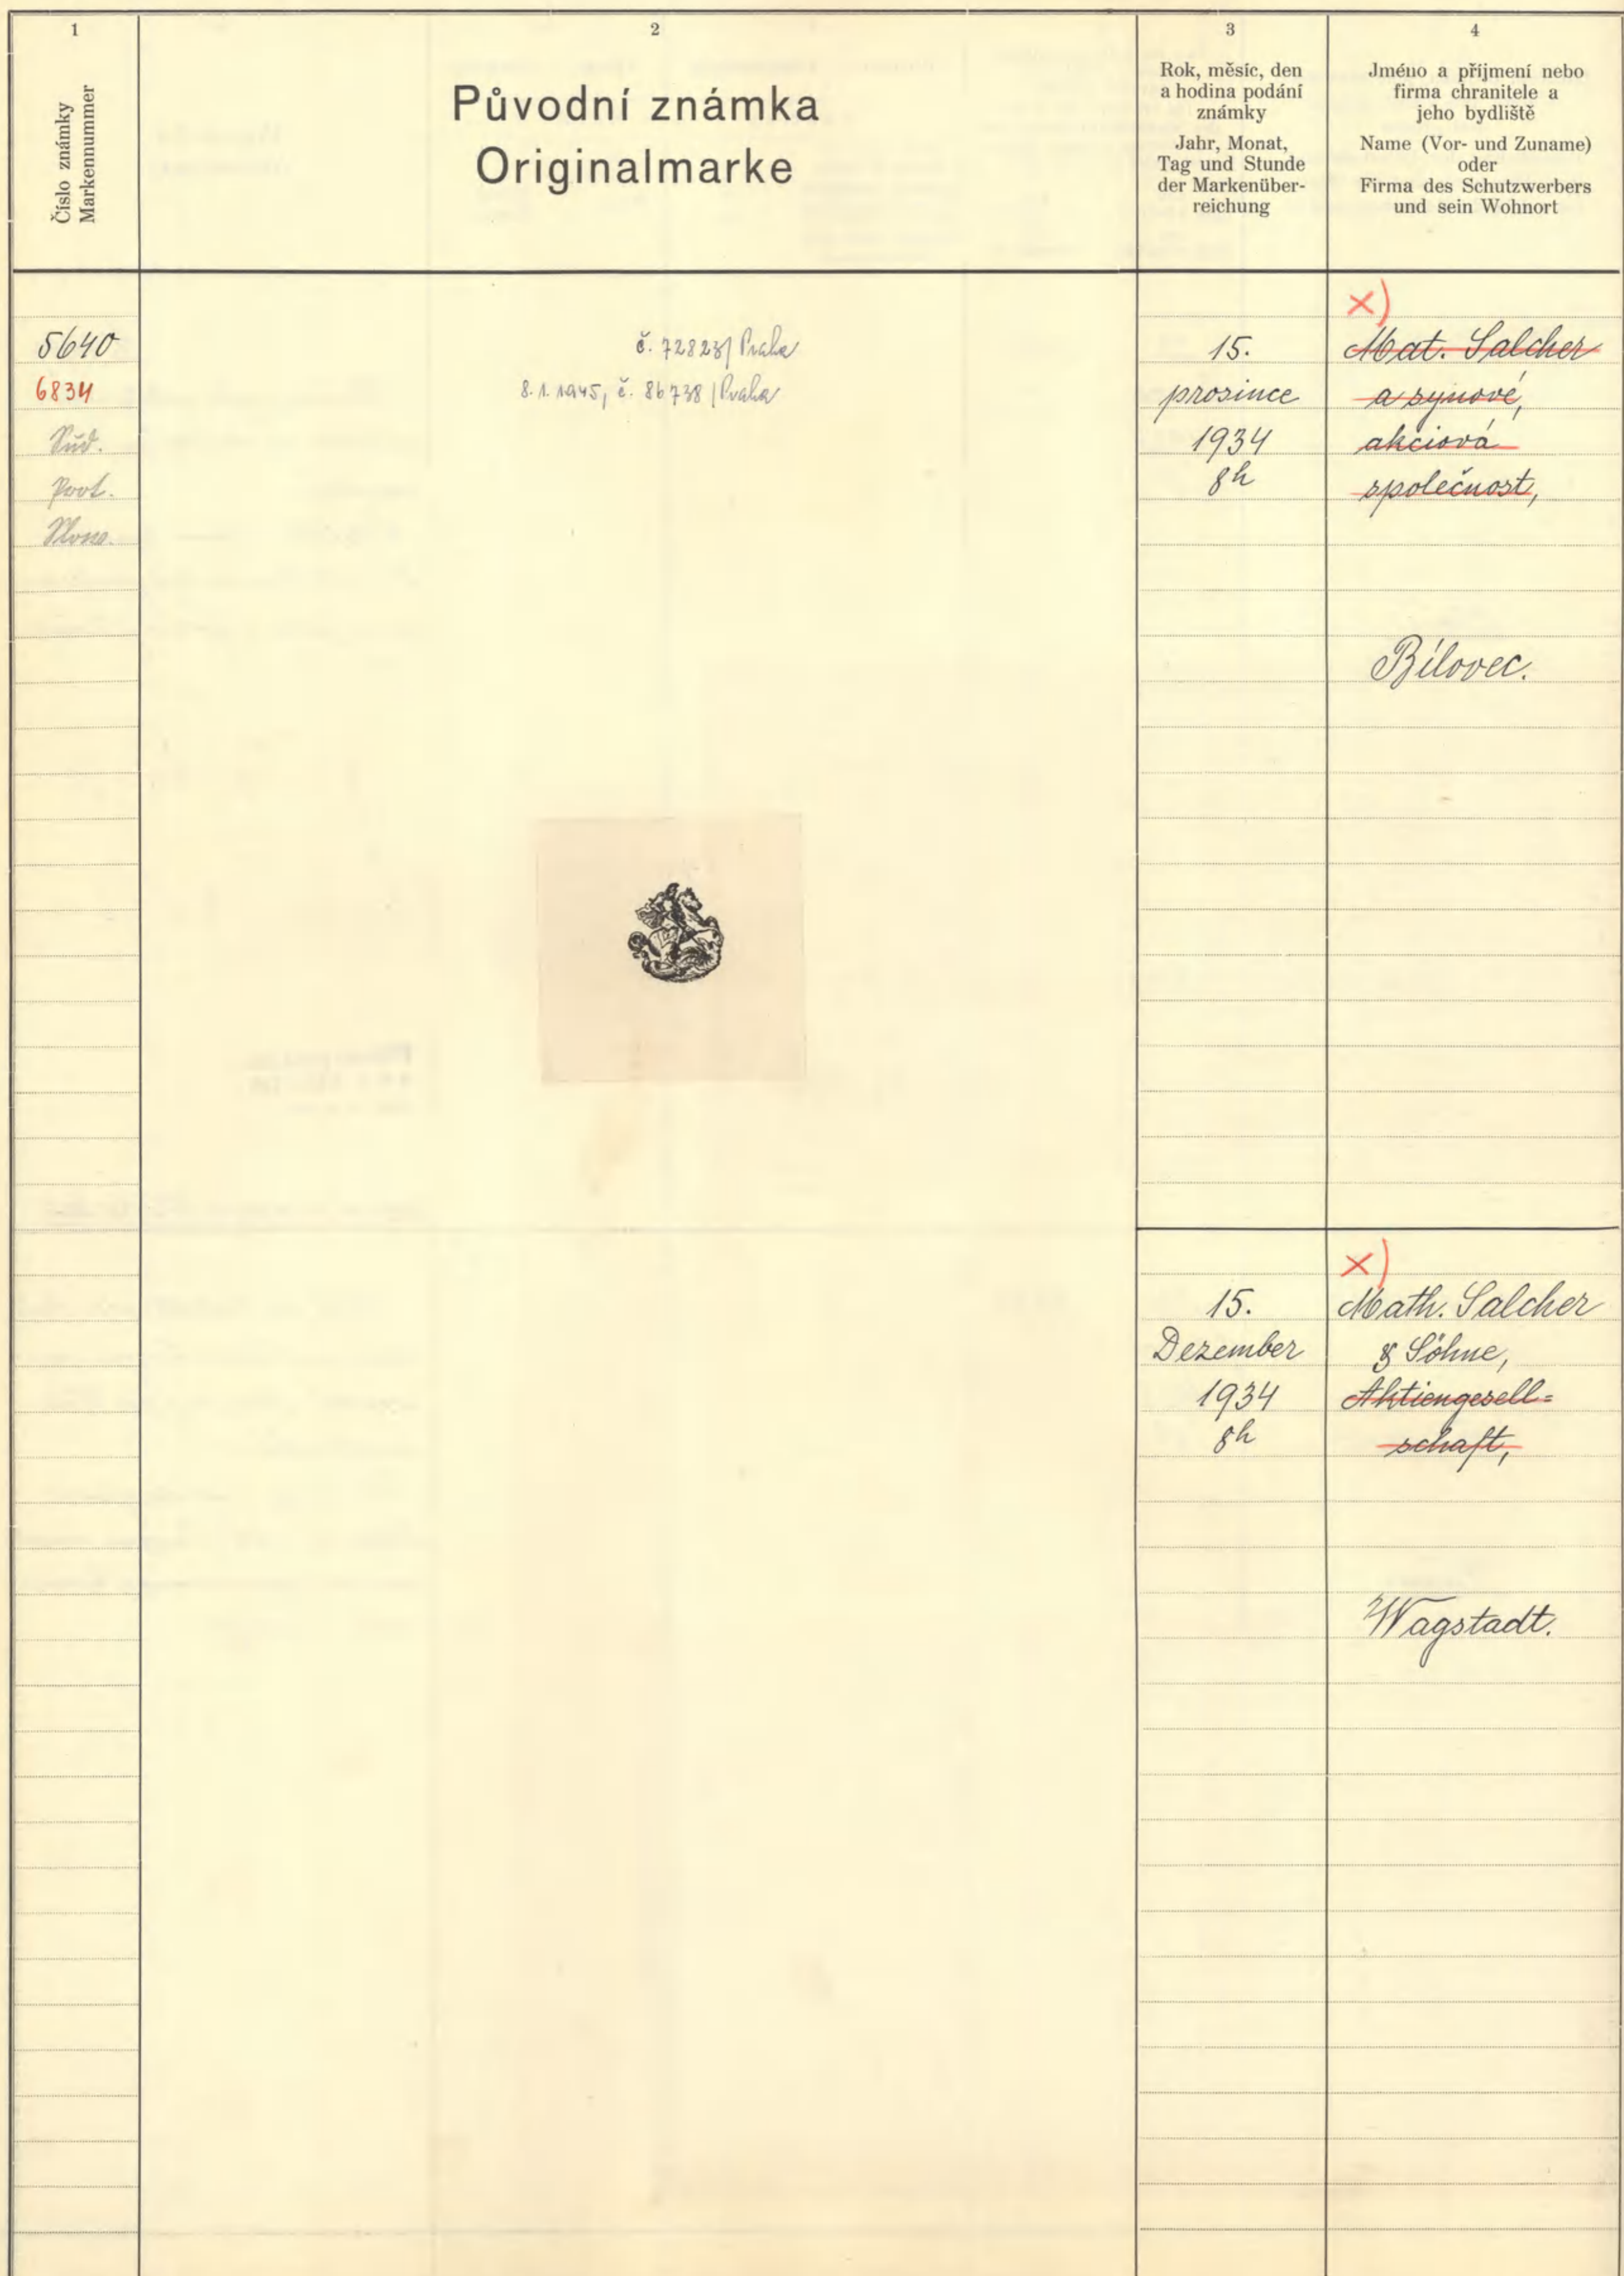 1
Číslo známky
Markennummer
2
Původní známka
Originalmarke
3
Rok, měsíc, den
a hodina podání
známky
Jahr, Monat,
Tag und Stunde
der Markenüber-
reichung
4
Jméno a příjmení nebo
firma chranitele a
jeho bydliště
Name (Vor- und Zuname)
oder
Firma des Schutzwerbers
und sein Wohnort
5640
6834
Sud.
Prot.
č. 72823/ Praha
8.1.1945, č. 86738 / Praha
15.
prosince
1934
8h
x)
Mat. Salcher
a synové,
akciová
společnost,
Bílovec.
15.
Dezember
1934
8h
x)
Math. Salcher
& Söhne,
Aktiengesell=
schaft,
Wagstadt.